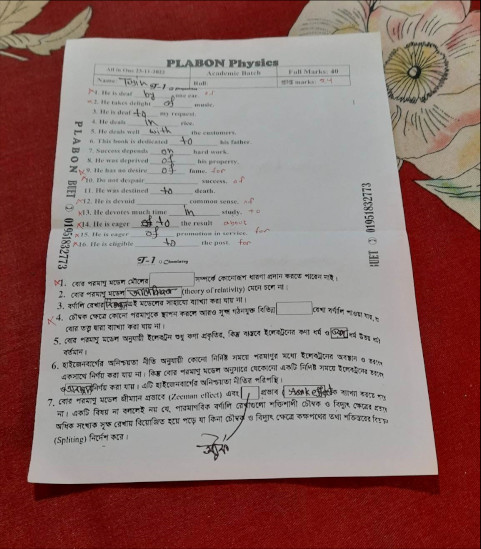 PLABON Physics
All in One 23-11-2023 Academic Batch Full Marks: 40
Name: Roll: marks:
1. He is deaf by one ear. of
2. He takes delight of music.
3. He is deaf to my request.
4. He deals in rice.
5. He deals well with the customers.
6. This book is dedicated to his father.
7. Success depends on hard work.
8. He was deprived of his property.
9. He has no desire of fame. for
10. Do not despair success. of
11. He was destined to death.
12. He is devoid common sense. of
13. He devotes much time in study. to
14. He is eager to the result about
15. He is eager of promotion in service. for
16. He is eligible to the post. for
PLABON BUET 01951832773
BUET 01951832773
1. বোর পরমাণু মডেল মৌলের সম্পর্কে কোনোরূপ ধারণা প্রদান করতে পারেন নাই।
2. বোর পরমাণু মডেল (theory of relativity) মেনে চলে না।
3. বর্ণালি রেখার মডেলের সাহায্যে ব্যাখ্যা করা যায় না।
4. চৌম্বক ক্ষেত্রে কোনো পরমাণুকে স্থাপন করলে আরও সূক্ষ্ম গঠনযুক্ত বিভিন্ন রেখা বর্ণালি পাওয়া যায়,
বোর তত্ত্ব দ্বারা ব্যাখ্যা করা যায় না।
5. বোর পরমাণু মডেল অনুযায়ী ইলেকট্রন শুধু কণা প্রকৃতির, কিন্তু বাস্তবে ইলেকট্রনের কণা ধর্ম ও ধর্ম উভয়
বর্তমান।
6. হাইজেনবার্গের অনিশ্চয়তা নীতি অনুযায়ী কোনো নির্দিষ্ট সময়ে পরমাণুর মধ্যে ইলেকট্রনের অবস্থান ও
একসাথে নির্ণয় করা যায় না। কিন্তু বোর পরমাণু মডেল অনুসারে যেকোনো একটি নির্দিষ্ট সময়ে ইলেকট্রনের
ও নির্ণয় করা যায়। এটি হাইজেনবার্গের অনিশ্চয়তা নীতির পরিপন্থি।
7. বোর পরমাণু মডেল জীমান প্রভাবে (Zeeman effect) এবং প্রভাব (Stark effect) ব্যাখ্যা করতে
না। একটি বিষয় না বললেই নয় যে, পারমাণবিক বর্ণালি রেখাগুলো শক্তিশালী চৌম্বক ও বিদ্যুৎ ক্ষেত্রের
অধিক সংখ্যক সূক্ষ্ম রেখায় বিয়োজিত হয়ে পড়ে যা কিনা চৌম্বক ও বিদ্যুৎ ক্ষেত্রে কক্ষপথের তথা শক্তিস্তরের
(Spliting) নির্দেশ করে।